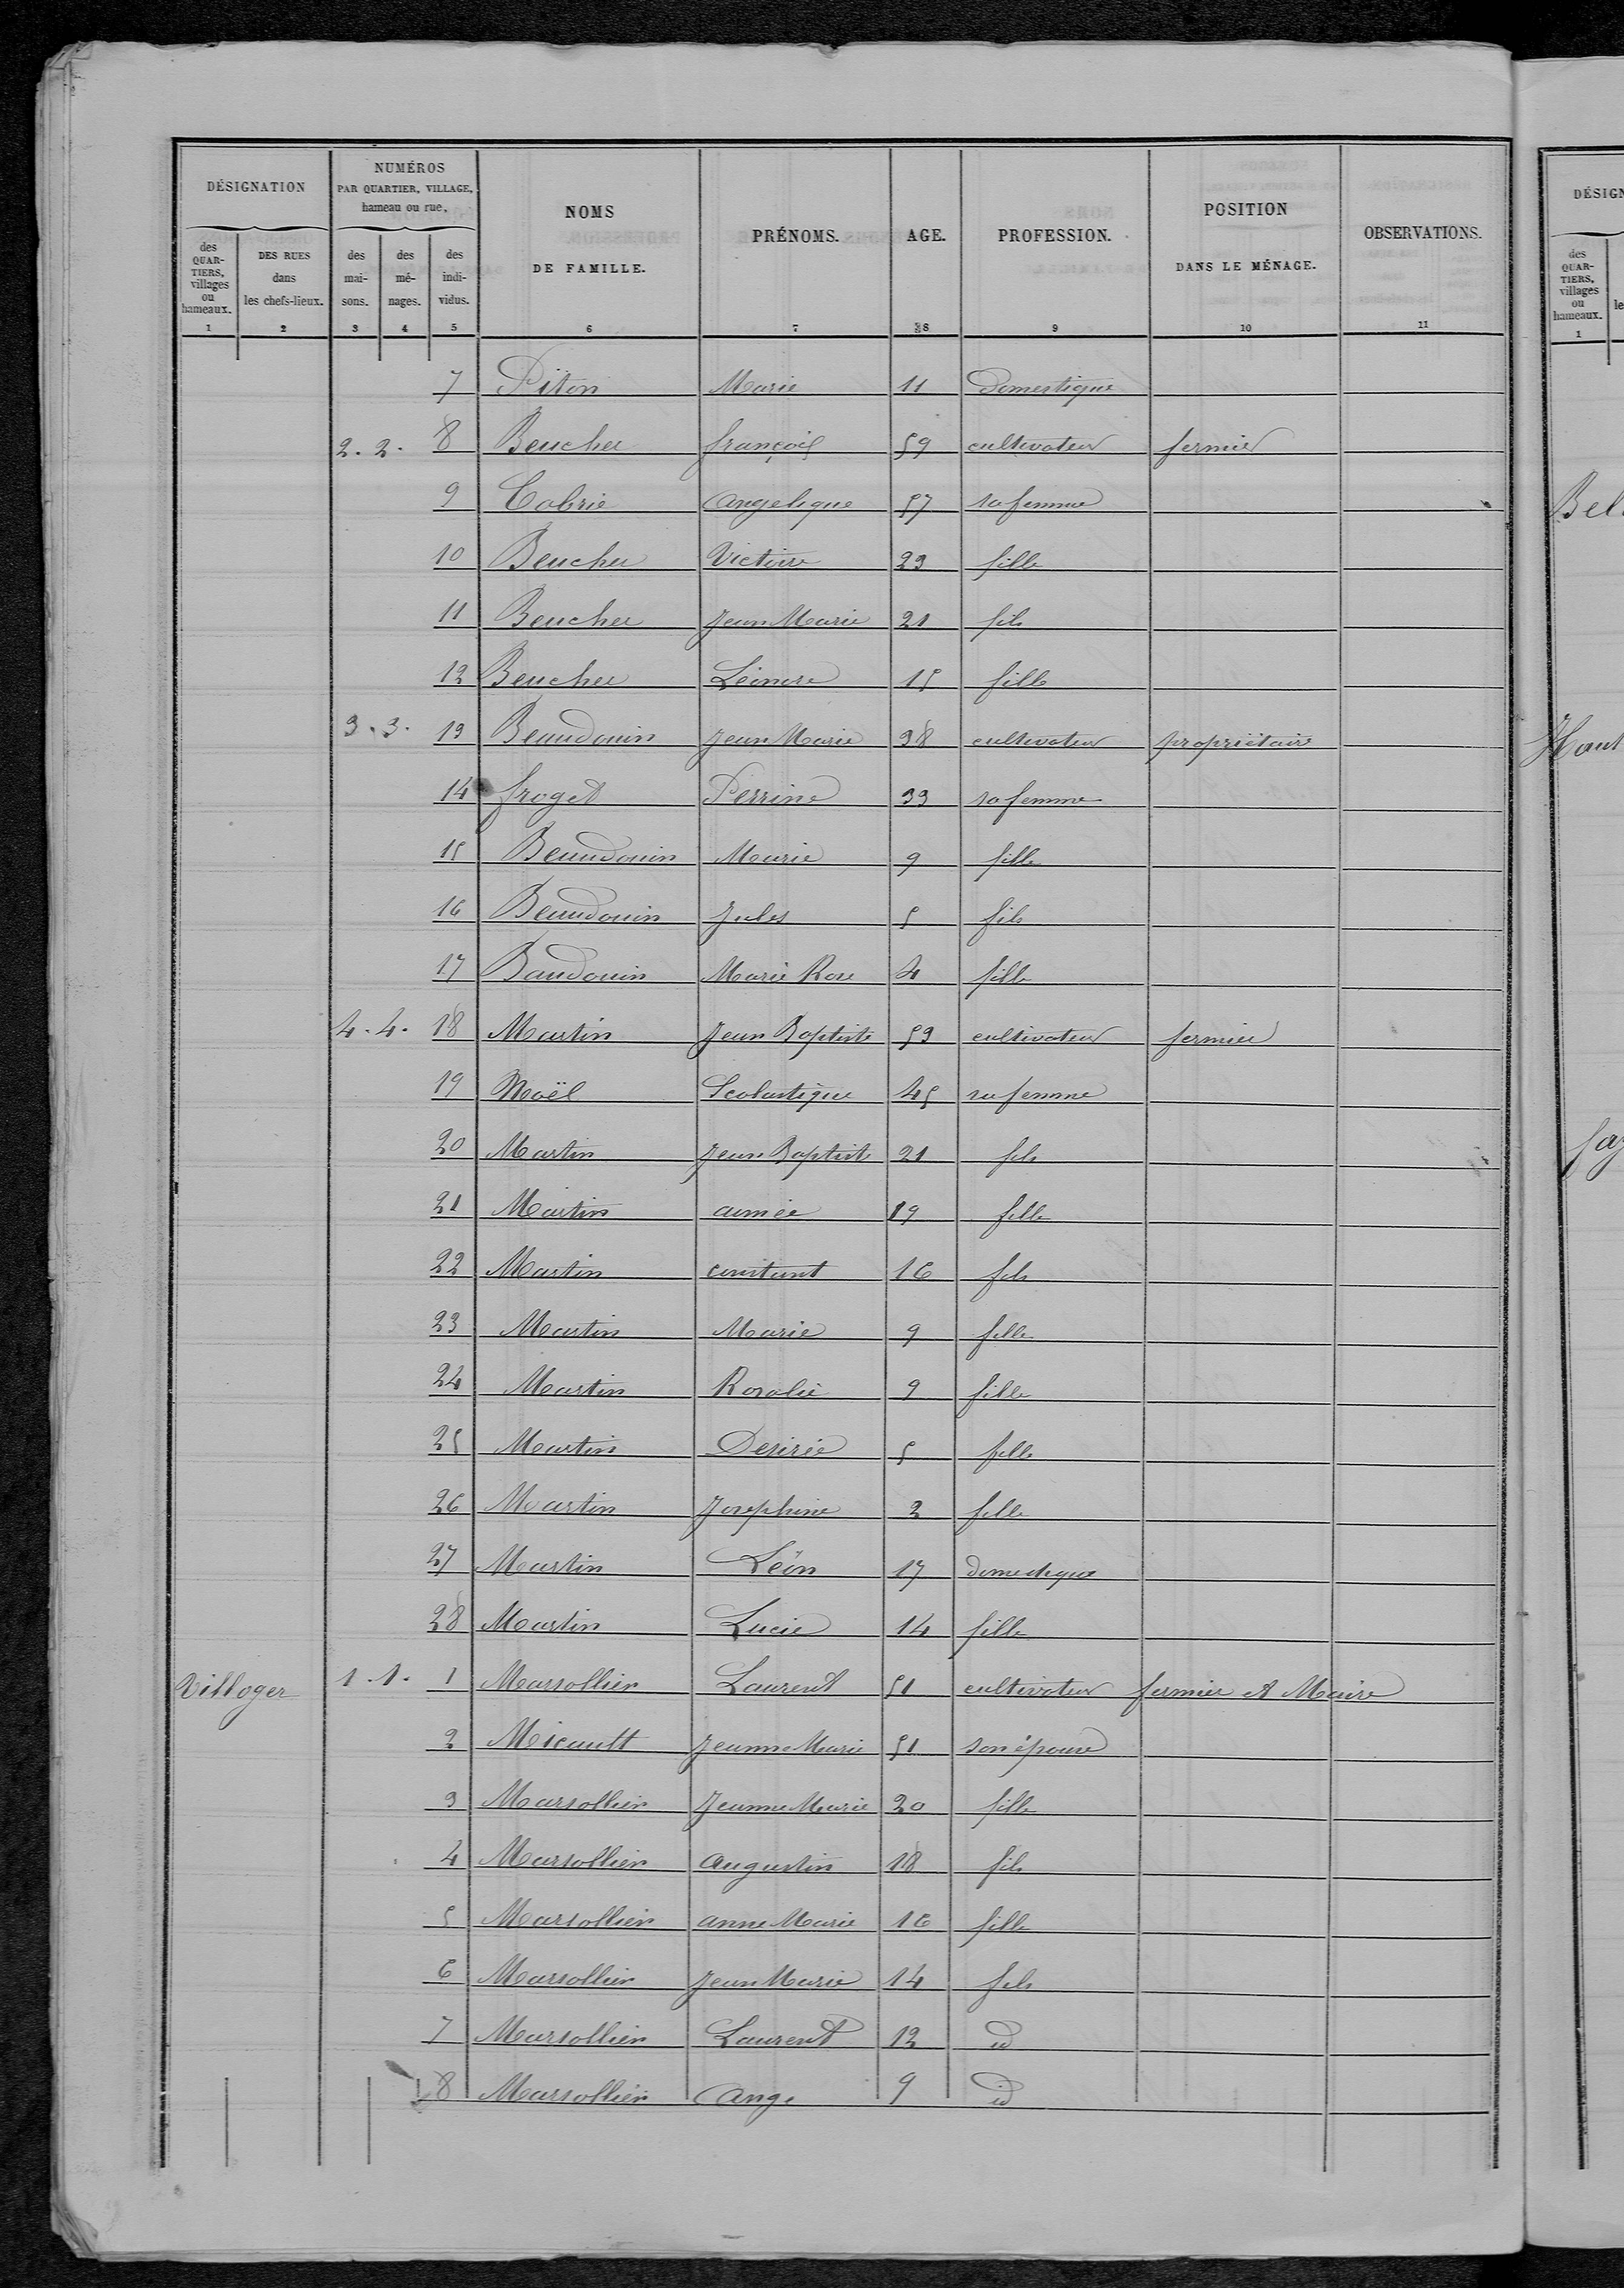 DÉSIGNATION
NUMÉROS
PAR QUARTIER, VILLAGE,
hameau ou rue.
NOMS
DE FAMILLE.
PRÉNOMS.
AGE.
PROFESSION.
POSITION
DANS LE MÉNAGE.
OBSERVATIONS.
des QUAR-TIERS, villages ou hameaux.
DES RUES dans les chefs-lieux.
des mai-sons.
des mé-nages.
des indi-vidus.
1 2 3 4 5 6 7 8 9 10 11
7 Piton Marie 11 domestique
2. 2. 8 Beucher françois 59 cultivateur fermier
9 Cobrie angelique 57 sa femme
10 Beucher Victoire 23 fille
11 Beucher Jean Marie 21 fils
12 Beucher Léonore 15 fille
3. 3. 13 Beaudouin Jean Marie 38 cultivateur propriétaire
14 froget Perrine 33 sa femme
15 Beaudouin Marie 9 fille
16 Beaudouin Jules 5 fils
17 Baudouin Marie Rose 4 fille
4. 4. 18 Martin Jean Baptiste 53 cultivateur fermier
19 Noël Scolastique 45 sa femme
20 Martin Jean Baptiste 21 fils
21 Martin aimée 19 fille
22 Martin constant 16 fils
23 Martin Marie 9 fille
24 Martin Rosalie 9 fille
25 Martin Desirée 5 fille
26 Martin Josephine 2 fille
27 Martin Léon 17 domestique
28 Martin Lucie 14 fille
Villoger 1. 1. 1 Marsollier Laurent 51 cultivateur fermier et Maire
2 Micault Jeanne Marie 51 son épouse
3 Marsollier Jeanne Marie 20 fille
4 Marsollier augustin 18 fils
5 Marsollier anne Marie 16 fille
6 Marsollier Jean Marie 14 fils
7 Marsollier Laurent 12 id
8 Marsollier ange 9 id
DÉSIGN
des QUAR-TIERS, villages ou hameaux.
le
1
Bel
Haut